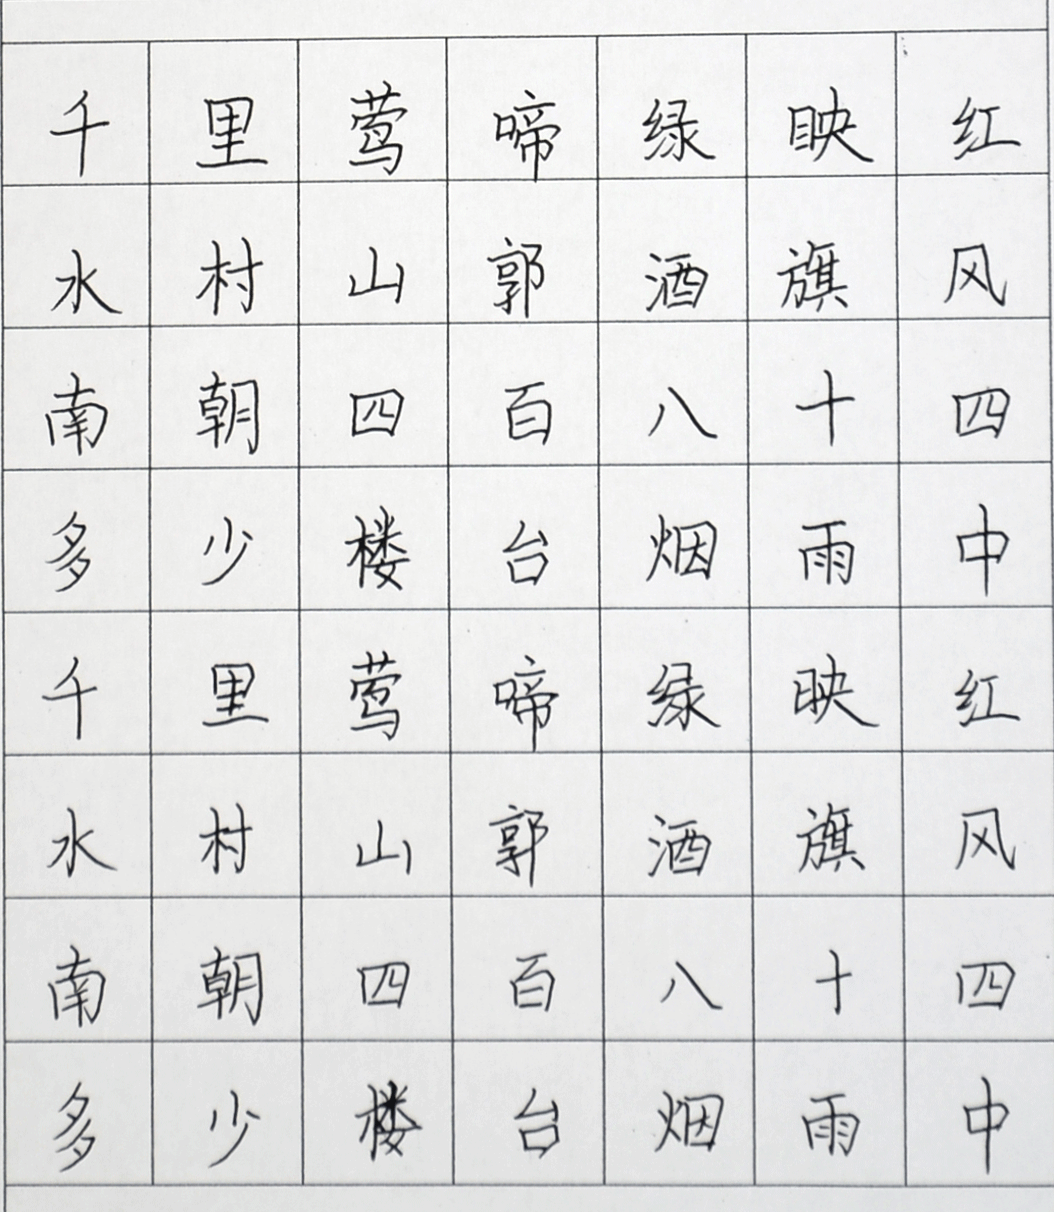 千里莺啼绿映红
水村山郭酒旗风
南朝四百八十四
多少楼台烟雨中
千里莺啼绿映红
水村山郭酒旗风
南朝四百八十四
多少楼台烟雨中